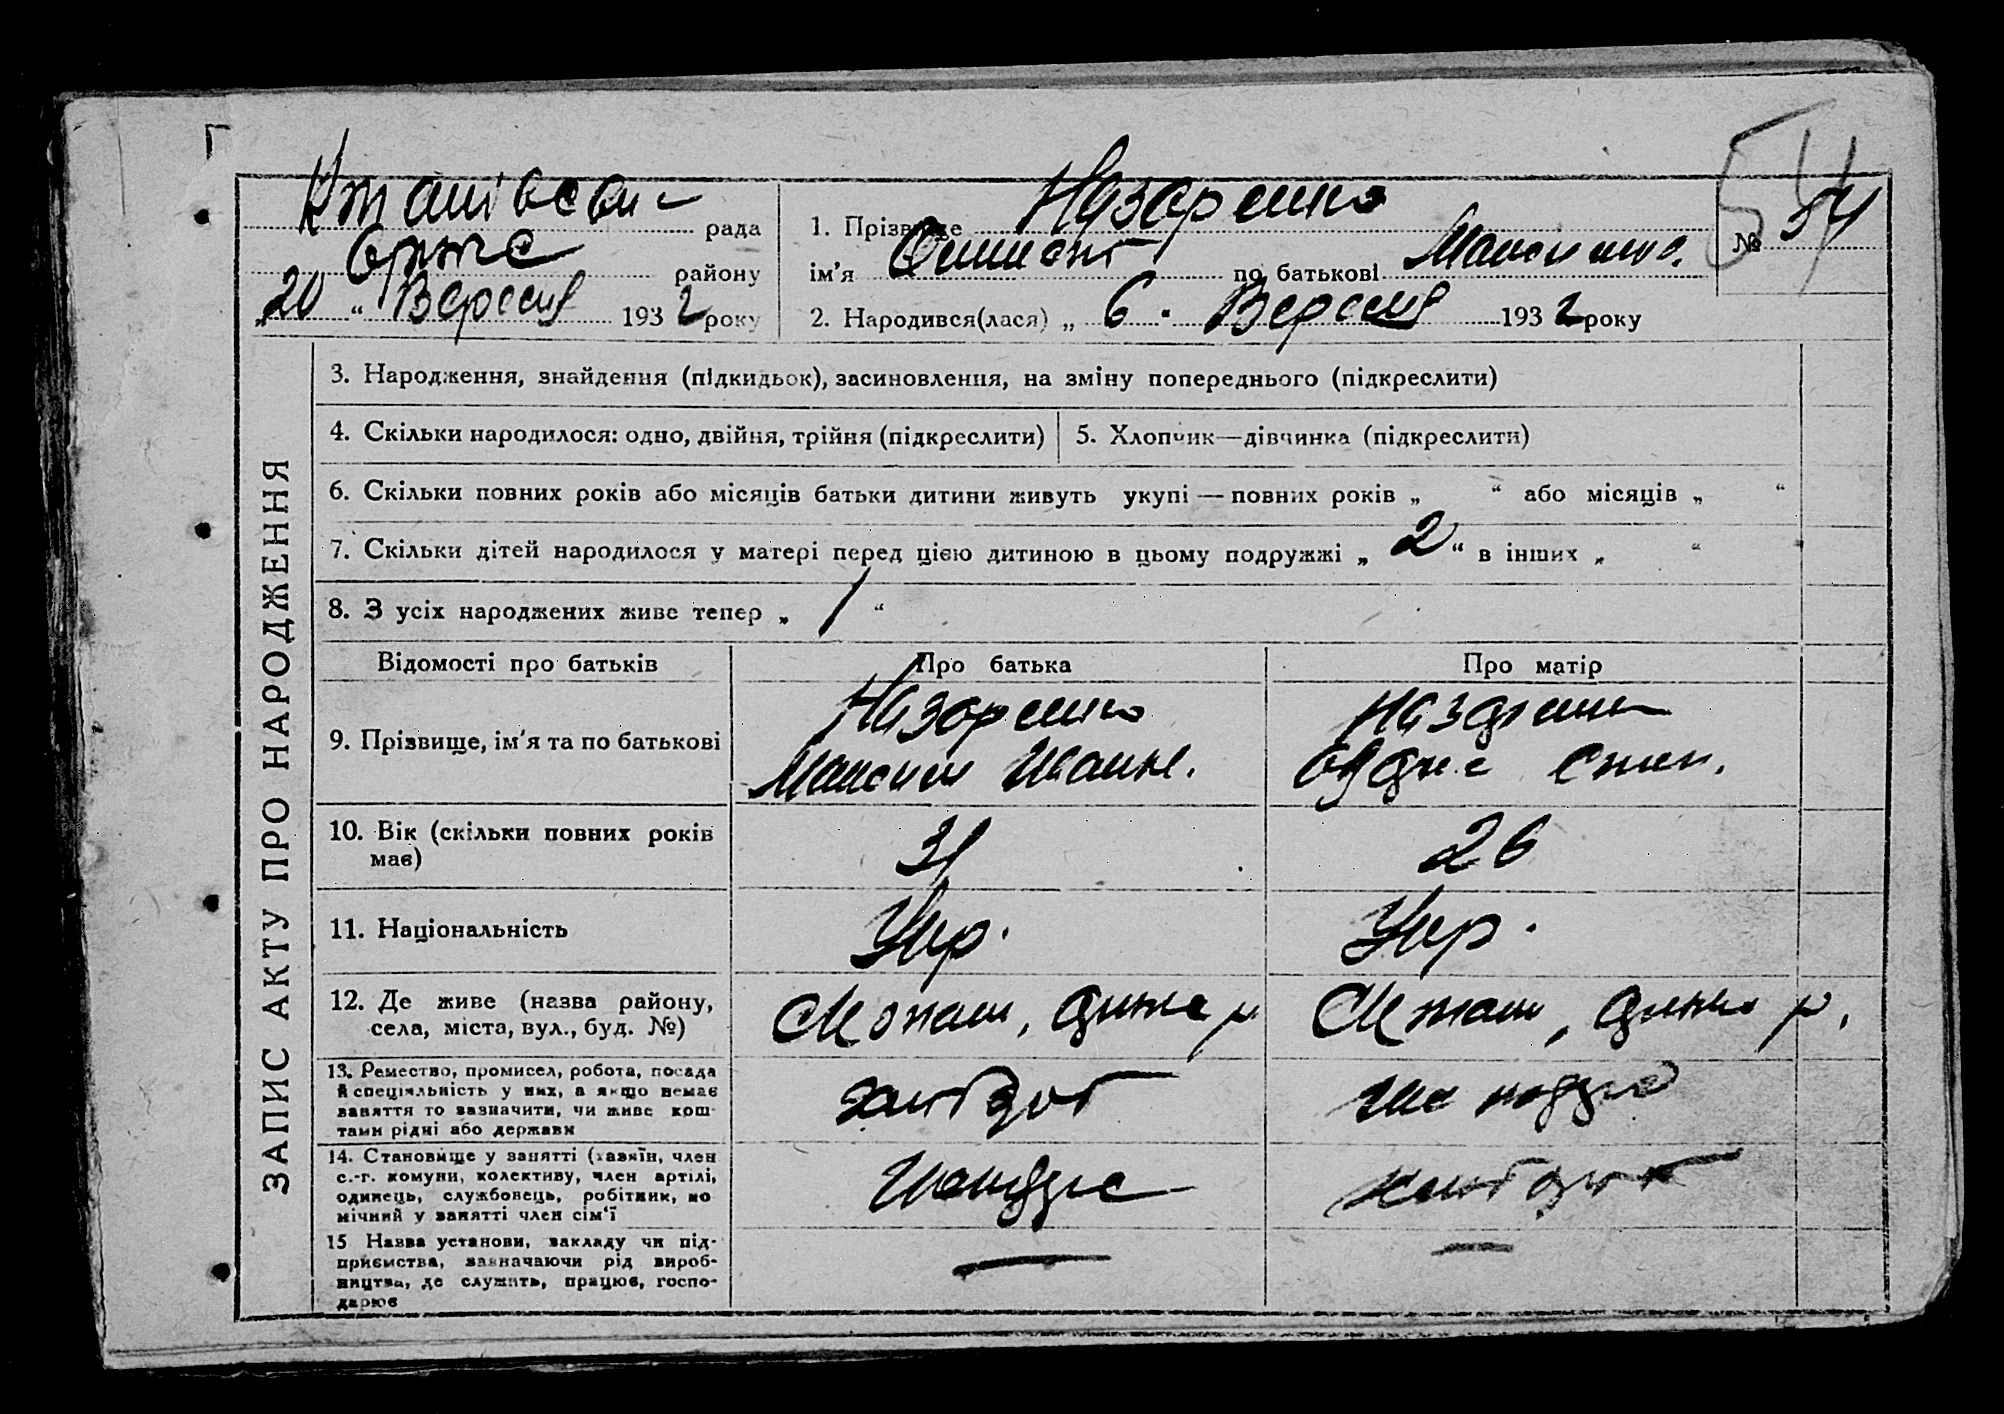 рада
району
„20“ Вересня 1932 року
1. Прізвище Назаренко
ім'я по батькові Максимов.
№ 54
54
2. Народився(лася) „ 6. Вересня 1932 року
ЗАПИС АКТУ ПРО НАРОДЖЕННЯ
3. Народження, знайдення (підкидьок), засиновлення, на зміну попереднього (підкреслити)
4. Скільки народилося: одно, двійня, трійня (підкреслити)
5. Хлопчик—дівчинка (підкреслити)
6. Скільки повних років або місяців батьки дитини живуть укупі — повних років „ “ або місяців „ “
7. Скільки дітей народилося у матері перед цією дитиною в цьому подружжі „ 2 “ в інших „ “
8. З усіх народжених живе тепер „ 1 “
Відомості про батьків
Про батька
Про матір
9. Прізвище, ім'я та по батькові
Назаренко
Максим Іван.
Назаренко
Степ.
10. Вік (скільки повних років
має)
31
26
11. Національність
Укр.
Укр.
12. Де живе (назва району,
села, міста, вул., буд. №)
р
р.
13. Ремество, промисел, робота, посада
й спеціяльність у них, а якщо немає
заняття то зазначити, чи живе кош-
тами рідні або держави
хлібороб
14. Становище у занятті (хазяїн, член
с.-г. комуни, колективу, член артілі,
одинець, службовець, робітник, по
мічний у занятті член сім'ї
15 Назва установи, закладу чи під-
приємства, зазначаючи рід вироб-
ництва, де служить, працює, госпо-
дарює